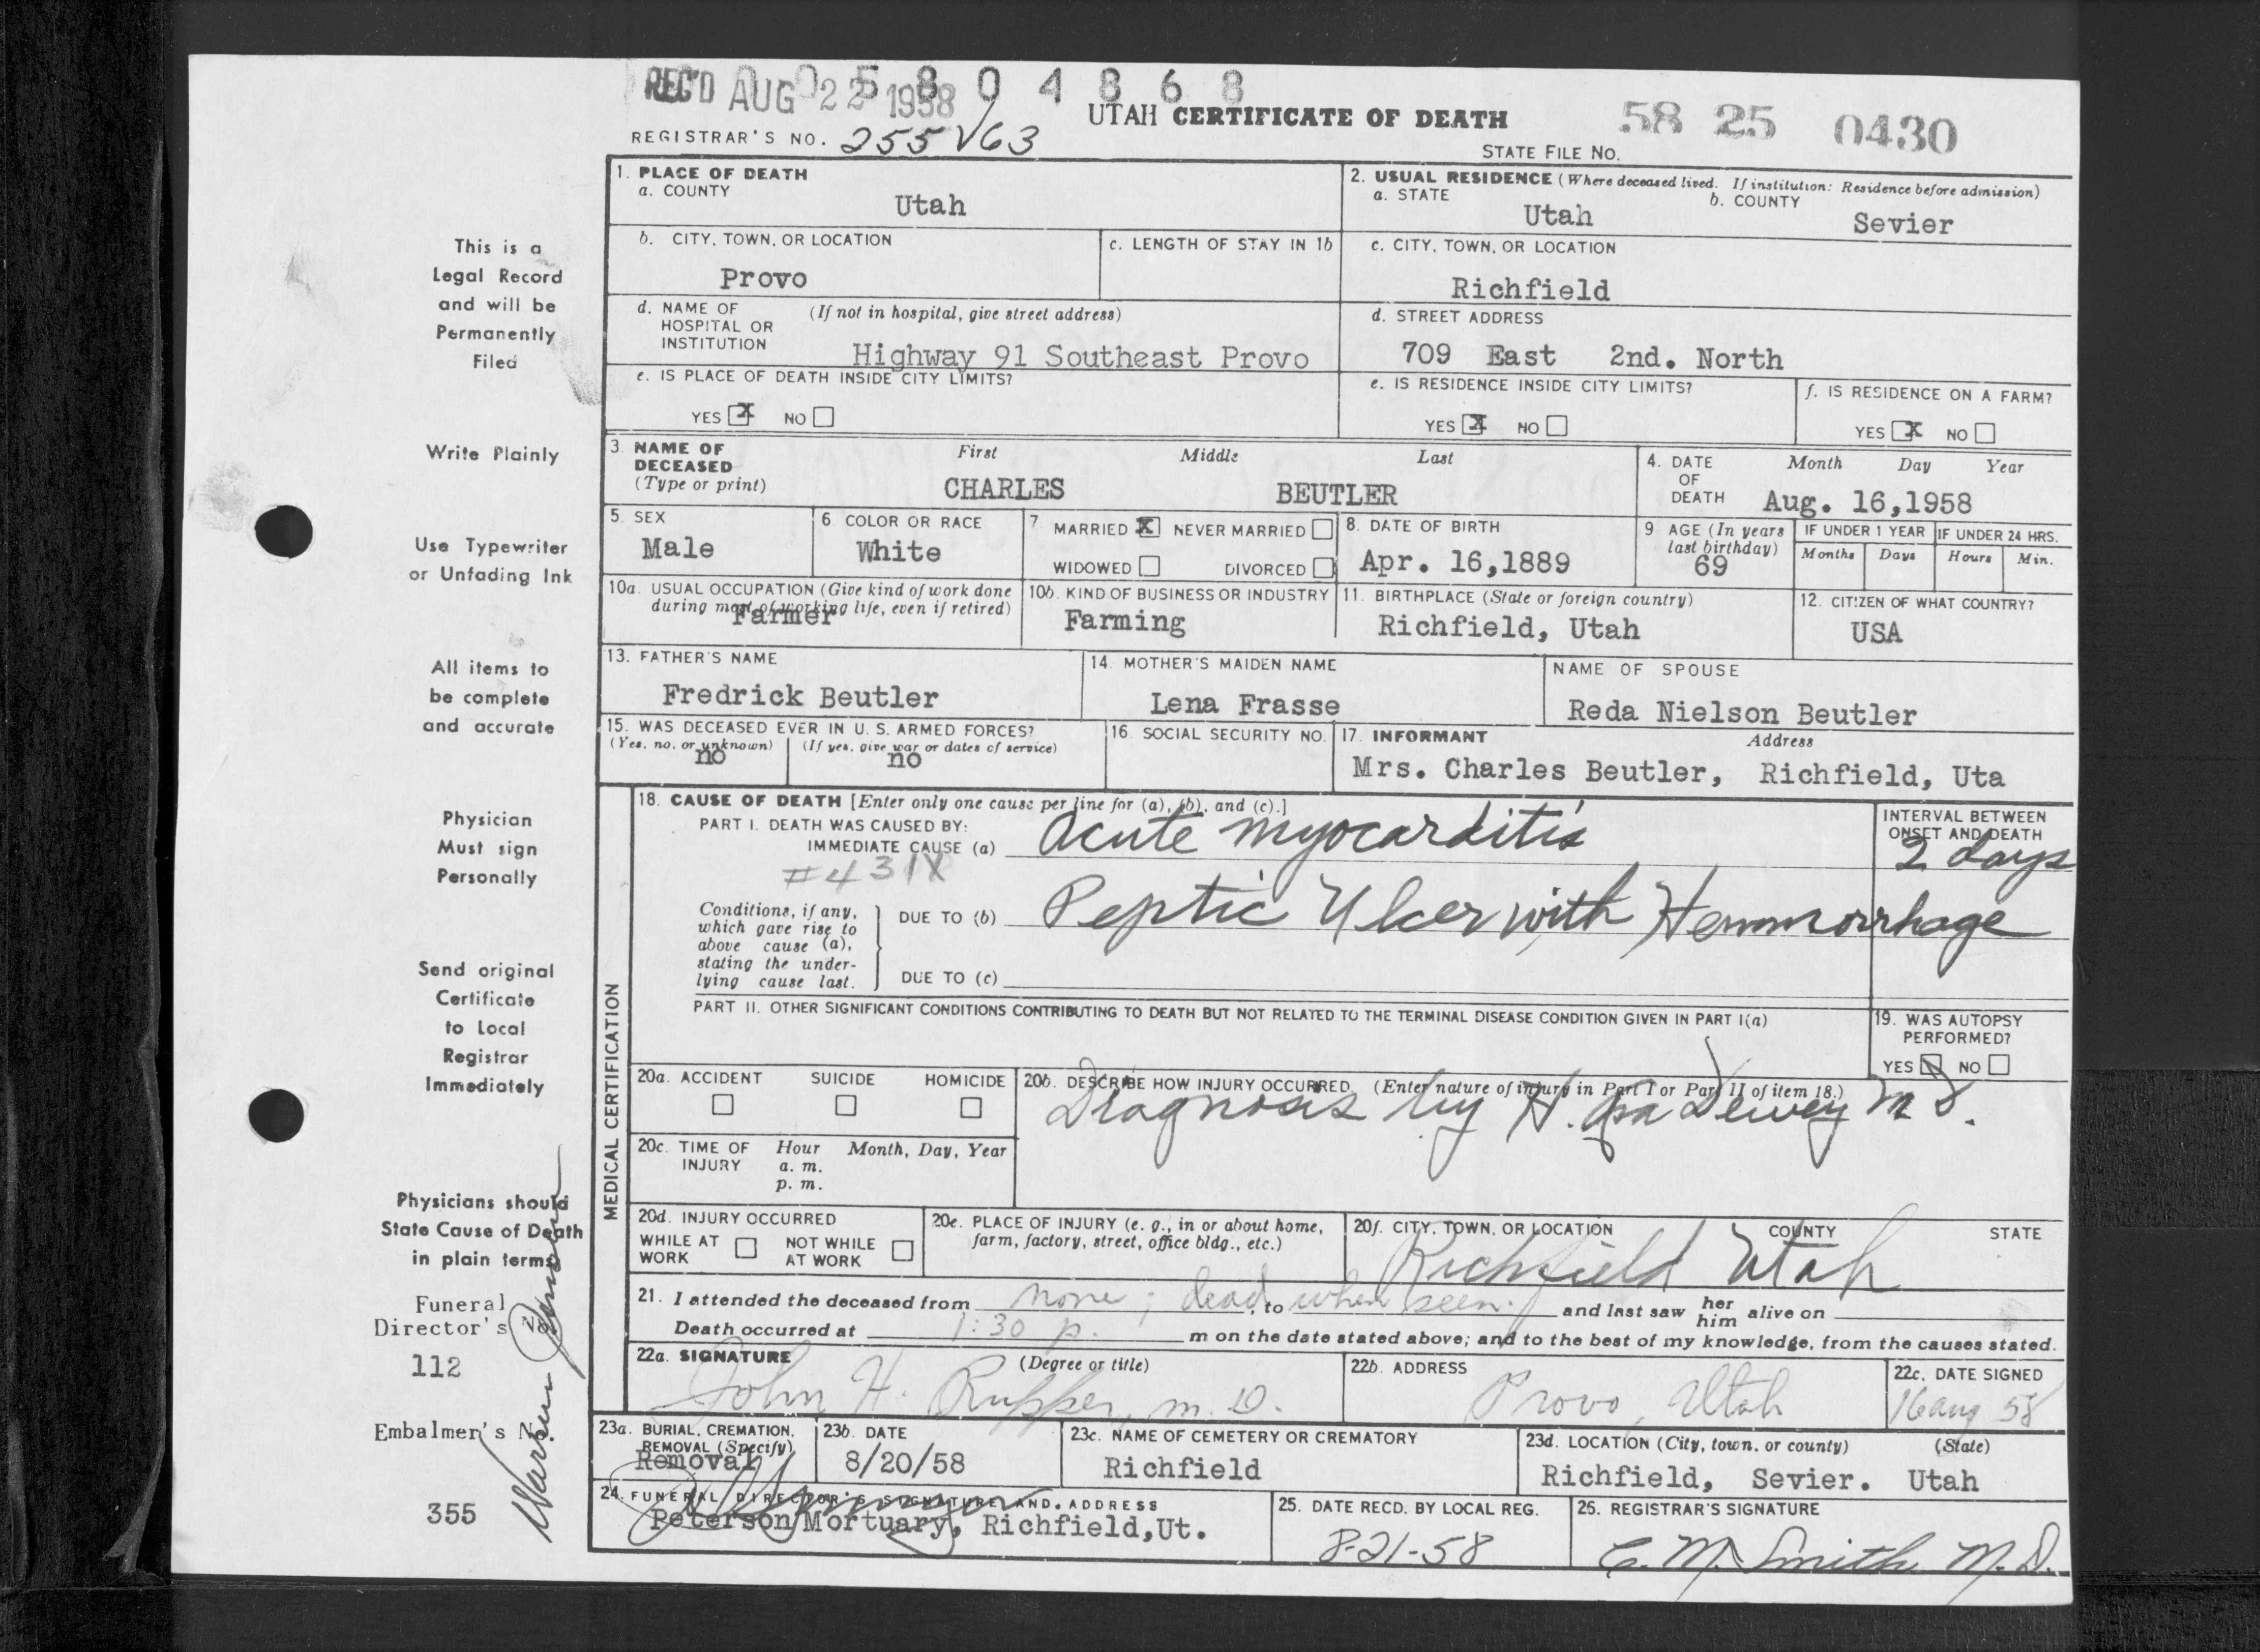 REC'D AUG 22 1958
0 0 5 8 0 4 8 6 8
UTAH CERTIFICATE OF DEATH
58 25 0430
REGISTRAR'S NO. 255 V63
STATE FILE NO.
1. PLACE OF DEATH
a. COUNTY
Utah
2. USUAL RESIDENCE (Where deceased lived. If institution: Residence before admission)
a. STATE
Utah
b. COUNTY
Sevier
b. CITY, TOWN, OR LOCATION
Provo
c. LENGTH OF STAY IN 1b
c. CITY, TOWN, OR LOCATION
Richfield
d. NAME OF HOSPITAL OR INSTITUTION (If not in hospital, give street address)
Highway 91 Southeast Provo
d. STREET ADDRESS
709 East 2nd. North
e. IS PLACE OF DEATH INSIDE CITY LIMITS?
YES X NO
e. IS RESIDENCE INSIDE CITY LIMITS?
YES X NO
f. IS RESIDENCE ON A FARM?
YES X NO
3. NAME OF DECEASED (Type or print)
First Middle Last
CHARLES BEUTLER
4. DATE OF DEATH
Month Day Year
Aug. 16,1958
5. SEX
Male
6. COLOR OR RACE
White
7 MARRIED X NEVER MARRIED
WIDOWED DIVORCED
8. DATE OF BIRTH
Apr. 16,1889
9 AGE (In years last birthday)
69
IF UNDER 1 YEAR
Months Days
IF UNDER 24 HRS.
Hours Min.
10a. USUAL OCCUPATION (Give kind of work done during most of working life, even if retired)
Farmer
10b. KIND OF BUSINESS OR INDUSTRY
Farming
11. BIRTHPLACE (State or foreign country)
Richfield, Utah
12. CITIZEN OF WHAT COUNTRY?
USA
13. FATHER'S NAME
Fredrick Beutler
14. MOTHER'S MAIDEN NAME
Lena Frasse
NAME OF SPOUSE
Reda Nielson Beutler
15. WAS DECEASED EVER IN U. S. ARMED FORCES?
(Yes, no, or unknown) (If yes, give war or dates of service)
no no
16. SOCIAL SECURITY NO.
17. INFORMANT Address
Mrs. Charles Beutler, Richfield, Uta
MEDICAL CERTIFICATION
18. CAUSE OF DEATH [Enter only one cause per line for (a), (b), and (c).]
PART I. DEATH WAS CAUSED BY:
IMMEDIATE CAUSE (a) Acute myocarditis
#431X
INTERVAL BETWEEN ONSET AND DEATH
2 days
Conditions, if any, which gave rise to above cause (a), stating the underlying cause last.
DUE TO (b) Peptic Ulcer with Hemmorrhage
DUE TO (c)
PART II. OTHER SIGNIFICANT CONDITIONS CONTRIBUTING TO DEATH BUT NOT RELATED TO THE TERMINAL DISEASE CONDITION GIVEN IN PART I(a)
19. WAS AUTOPSY PERFORMED?
YES NO
20a. ACCIDENT SUICIDE HOMICIDE
20b. DESCRIBE HOW INJURY OCCURRED. (Enter nature of injury in Part I or Part II of item 18.)
Diagnosis by H. Asa Dewey M D.
20c. TIME OF INJURY
Hour Month, Day, Year
a. m.
p. m.
20d. INJURY OCCURRED
WHILE AT WORK NOT WHILE AT WORK
20e. PLACE OF INJURY (e. g., in or about home, farm, factory, street, office bldg., etc.)
20f. CITY, TOWN, OR LOCATION COUNTY STATE
Richfield Utah
21. I attended the deceased from none; dead, to when seen. and last saw her him alive on
Death occurred at 1:30 p. m on the date stated above; and to the best of my knowledge, from the causes stated.
22a. SIGNATURE (Degree or title)
John H. Rupper, m. D.
22b. ADDRESS
Provo, Utah
22c. DATE SIGNED
16 aug 58
23a. BURIAL, CREMATION, REMOVAL (Specify)
Removal
23b. DATE
8/20/58
23c. NAME OF CEMETERY OR CREMATORY
Richfield
23d. LOCATION (City, town, or county) (State)
Richfield, Sevier. Utah
24. FUNERAL DIRECTOR'S SIGNATURE AND ADDRESS
Peterson Mortuary, Richfield,Ut.
25. DATE RECD. BY LOCAL REG.
8-21-58
26. REGISTRAR'S SIGNATURE
C. M. Smith M.D.
This is a
Legal Record
and will be
Permanently
Filed
Write Plainly
Use Typewriter
or Unfading Ink
All items to
be complete
and accurate
Physician
Must sign
Personally
Send original
Certificate
to Local
Registrar
Immediately
Physicians should
State Cause of Death
in plain terms
Funeral
Director's No.
112
Embalmer's No.
355